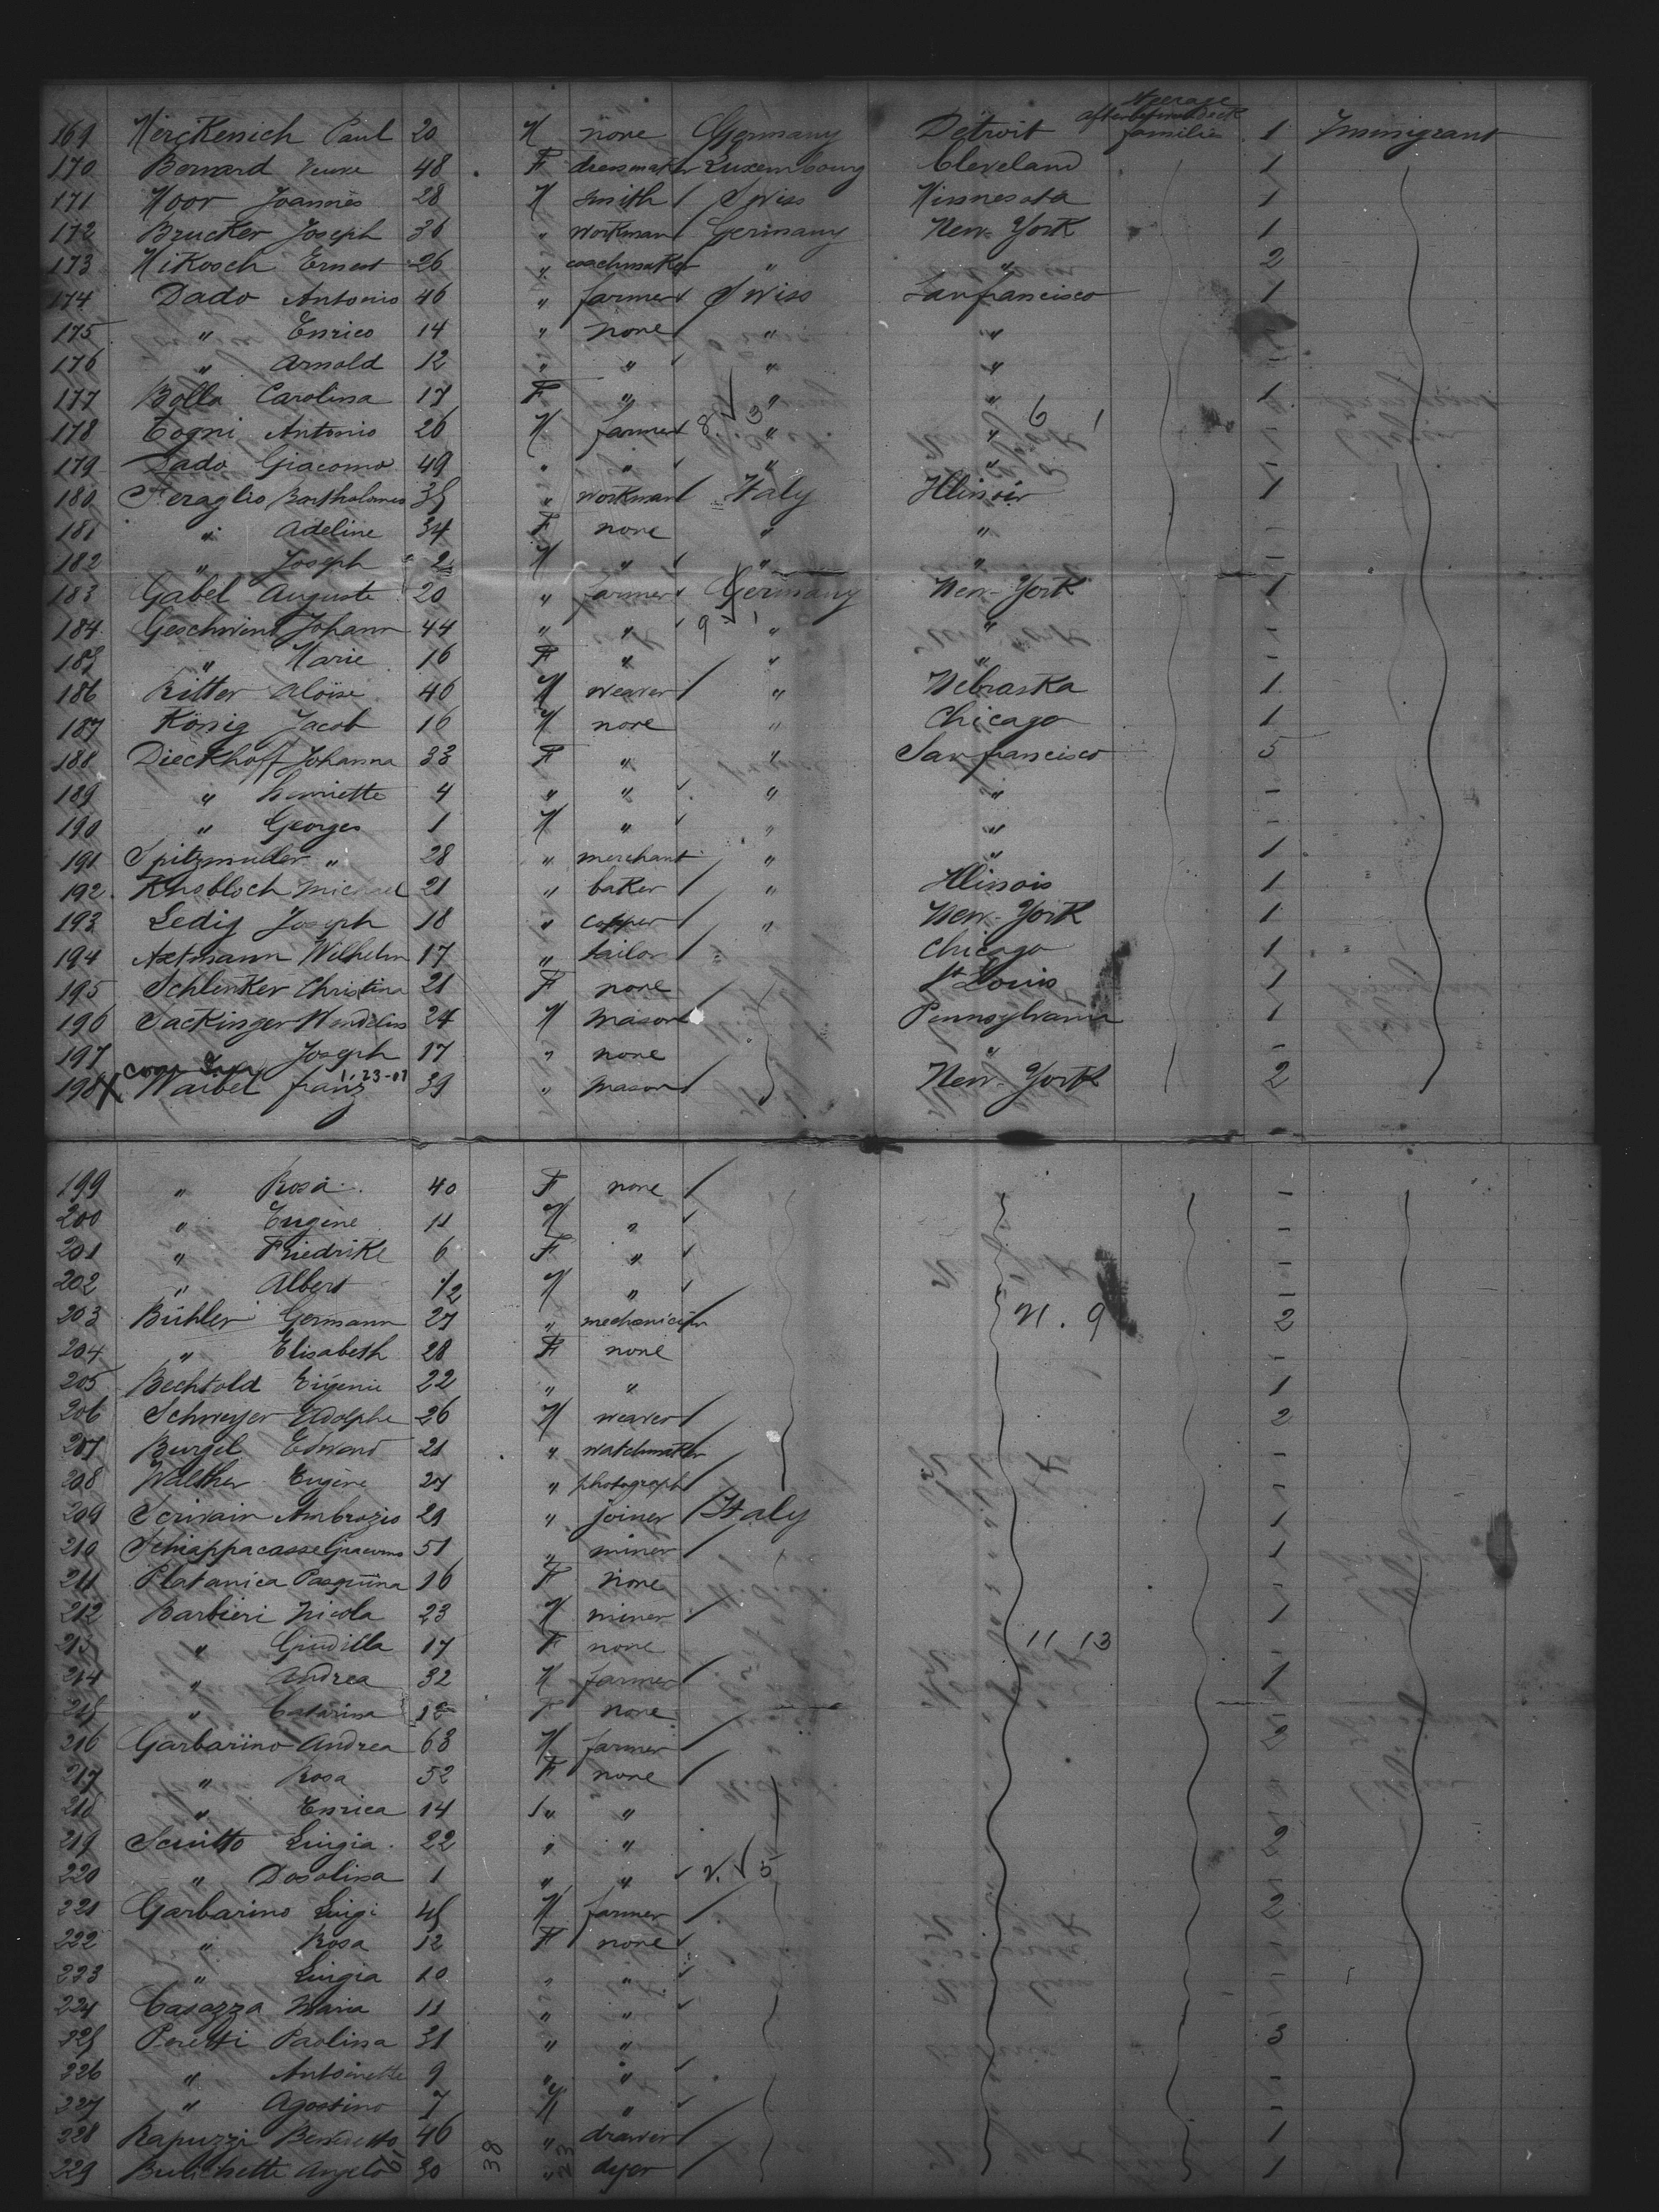 steerage
after between deck
169 Merckenich Paul 20 M none Germany Detroit familie 1 Immigrant
170 Bernard Veuve 48 F dressmaker Luxembourg Cleveland 1
171 Moor Joannes 28 M smith Swiss Minnesota 1
172 Brucker Joseph 36 " workman Germany New-York 1
173 Mikosch Ernest 26 " coachmaker " " 2
174 Dado Antonio 46 " farmer Swiss Sanfrancisco 1
175 " Enrico 14 " none " " -
176 " Arnold 12 " " " " -
177 Bolla Carolina 17 F " " " 1
178 Togni Antonio 26 M farmer 8 3 " " 6 1
179 Dado Giacomo 49 " " " " -
180 Feraglio Bartholomeo 35 " workman Italy Illinois 1
181 " Adeline 34 F none " " -
182 " Joseph 2 M " " " -
183 Gabel Auguste 20 " farmer Germany New-York 1
184 Geschwind Johann 44 " " 9 1 " " -
185 " Marie 16 F " " " -
186 Ritter Aloïse 40 M weaver " Nebraska 1
187 König Jacob 16 M none " Chicago 1
188 Dieckhoff Johanna 33 F " " San francisco 5
189 " henriette 4 " " " " -
190 " Georges 1 M " " " -
191 Spitzmuller " 28 " merchant " " 1
192 Knobloch Michael 21 " baker " Illinois 1
193 Ledig Joseph 18 " copper " New-York 1
194 Axtmann Wilhelm 17 " tailor " Chicago 1
195 Schlenker Christina 21 F none St Louis 1
196 Sackinger Wendelin 24 M mason Pennsylvania 1
197 Joseph 17 " none " -
1-23-01
198 X Waibel franz 39 " mason New-York 2
-
199 " Rosa 40 F none -
200 " Eugene 11 M " -
201 " Friedrike 6 F " -
202 " Albert 1/2 M " -
203 Bühler Germann 27 " mechanician 21. 9 2
204 " Elisabeth 28 F none -
205 Bechtold Eugenie 22 " " 1
206 Schweyer Adolphe 26 M weaver 2
207 Burgel Edward 21 " watchmaker -
208 Walther Eugène 27 " photograph -
209 Scrivain Ambrozio 29 " joiner Italy 1
210 Schiappacasse Giacomo 51 " miner 1
211 Platanica Pasquina 16 F none -
212 Barbieri Nicola 23 M miner 1
213 " Giudilla 17 F none 11 13 -
214 " Andrea 32 M farmer 1
215 " Catarina F none -
216 Garbarino Andrea 63 M farmer 2
217 " Rosa 52 F none -
218 " Enrica 14 " " -
219 Scuitto Luigia 22 " " 2
220 " Dosolina 1 " " 2. 5 -
221 Garbarino Luigi 45 M farmer 2
222 " Rosa 12 F none -
223 " Luigia 10 " " -
224 Casazza Maria 11 " " -
225 Peretti Paolina 31 " " 3
226 " Antoinette 9 " " -
227 " Agostino 7 M " -
228 Rapuzzi Benedetto 46 " drawer 1
229 Angelo 30 38 " 23 dyer 1